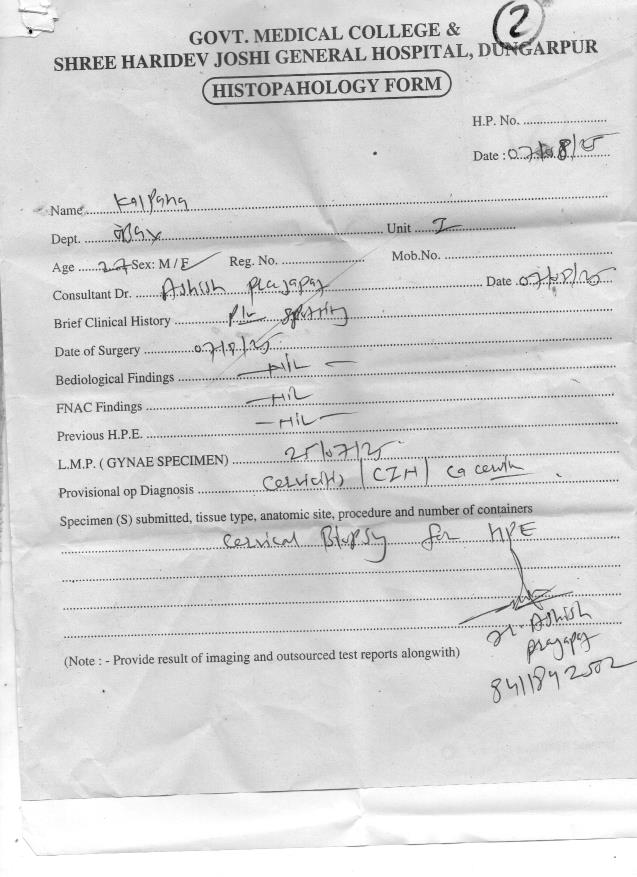 2
GOVT. MEDICAL COLLEGE &
SHREE HARIDEV JOSHI GENERAL HOSPITAL, DUNGARPUR
HISTOPAHOLOGY FORM
H.P. No. ..........................
Date : 07/08/25
Name Kalpana
Dept. ........ Unit I
Age 27 Sex: M / F Reg. No. .................... Mob.No. ....................
Consultant Dr. Ashish Prajapat Date 07/08/25
Brief Clinical History P/V spotting
Date of Surgery 07/8/25
Bediological Findings —NIL—
FNAC Findings —NIL
Previous H.P.E. —NIL—
L.M.P. ( GYNAE SPECIMEN) 25/07/25
Provisional op Diagnosis Cervicitis / CIN / Ca cervix
Specimen (S) submitted, tissue type, anatomic site, procedure and number of containers
Cervical Biopsy for HPE
Dr. Ashish
Prajapat
(Note : - Provide result of imaging and outsourced test reports alongwith)
8411842502